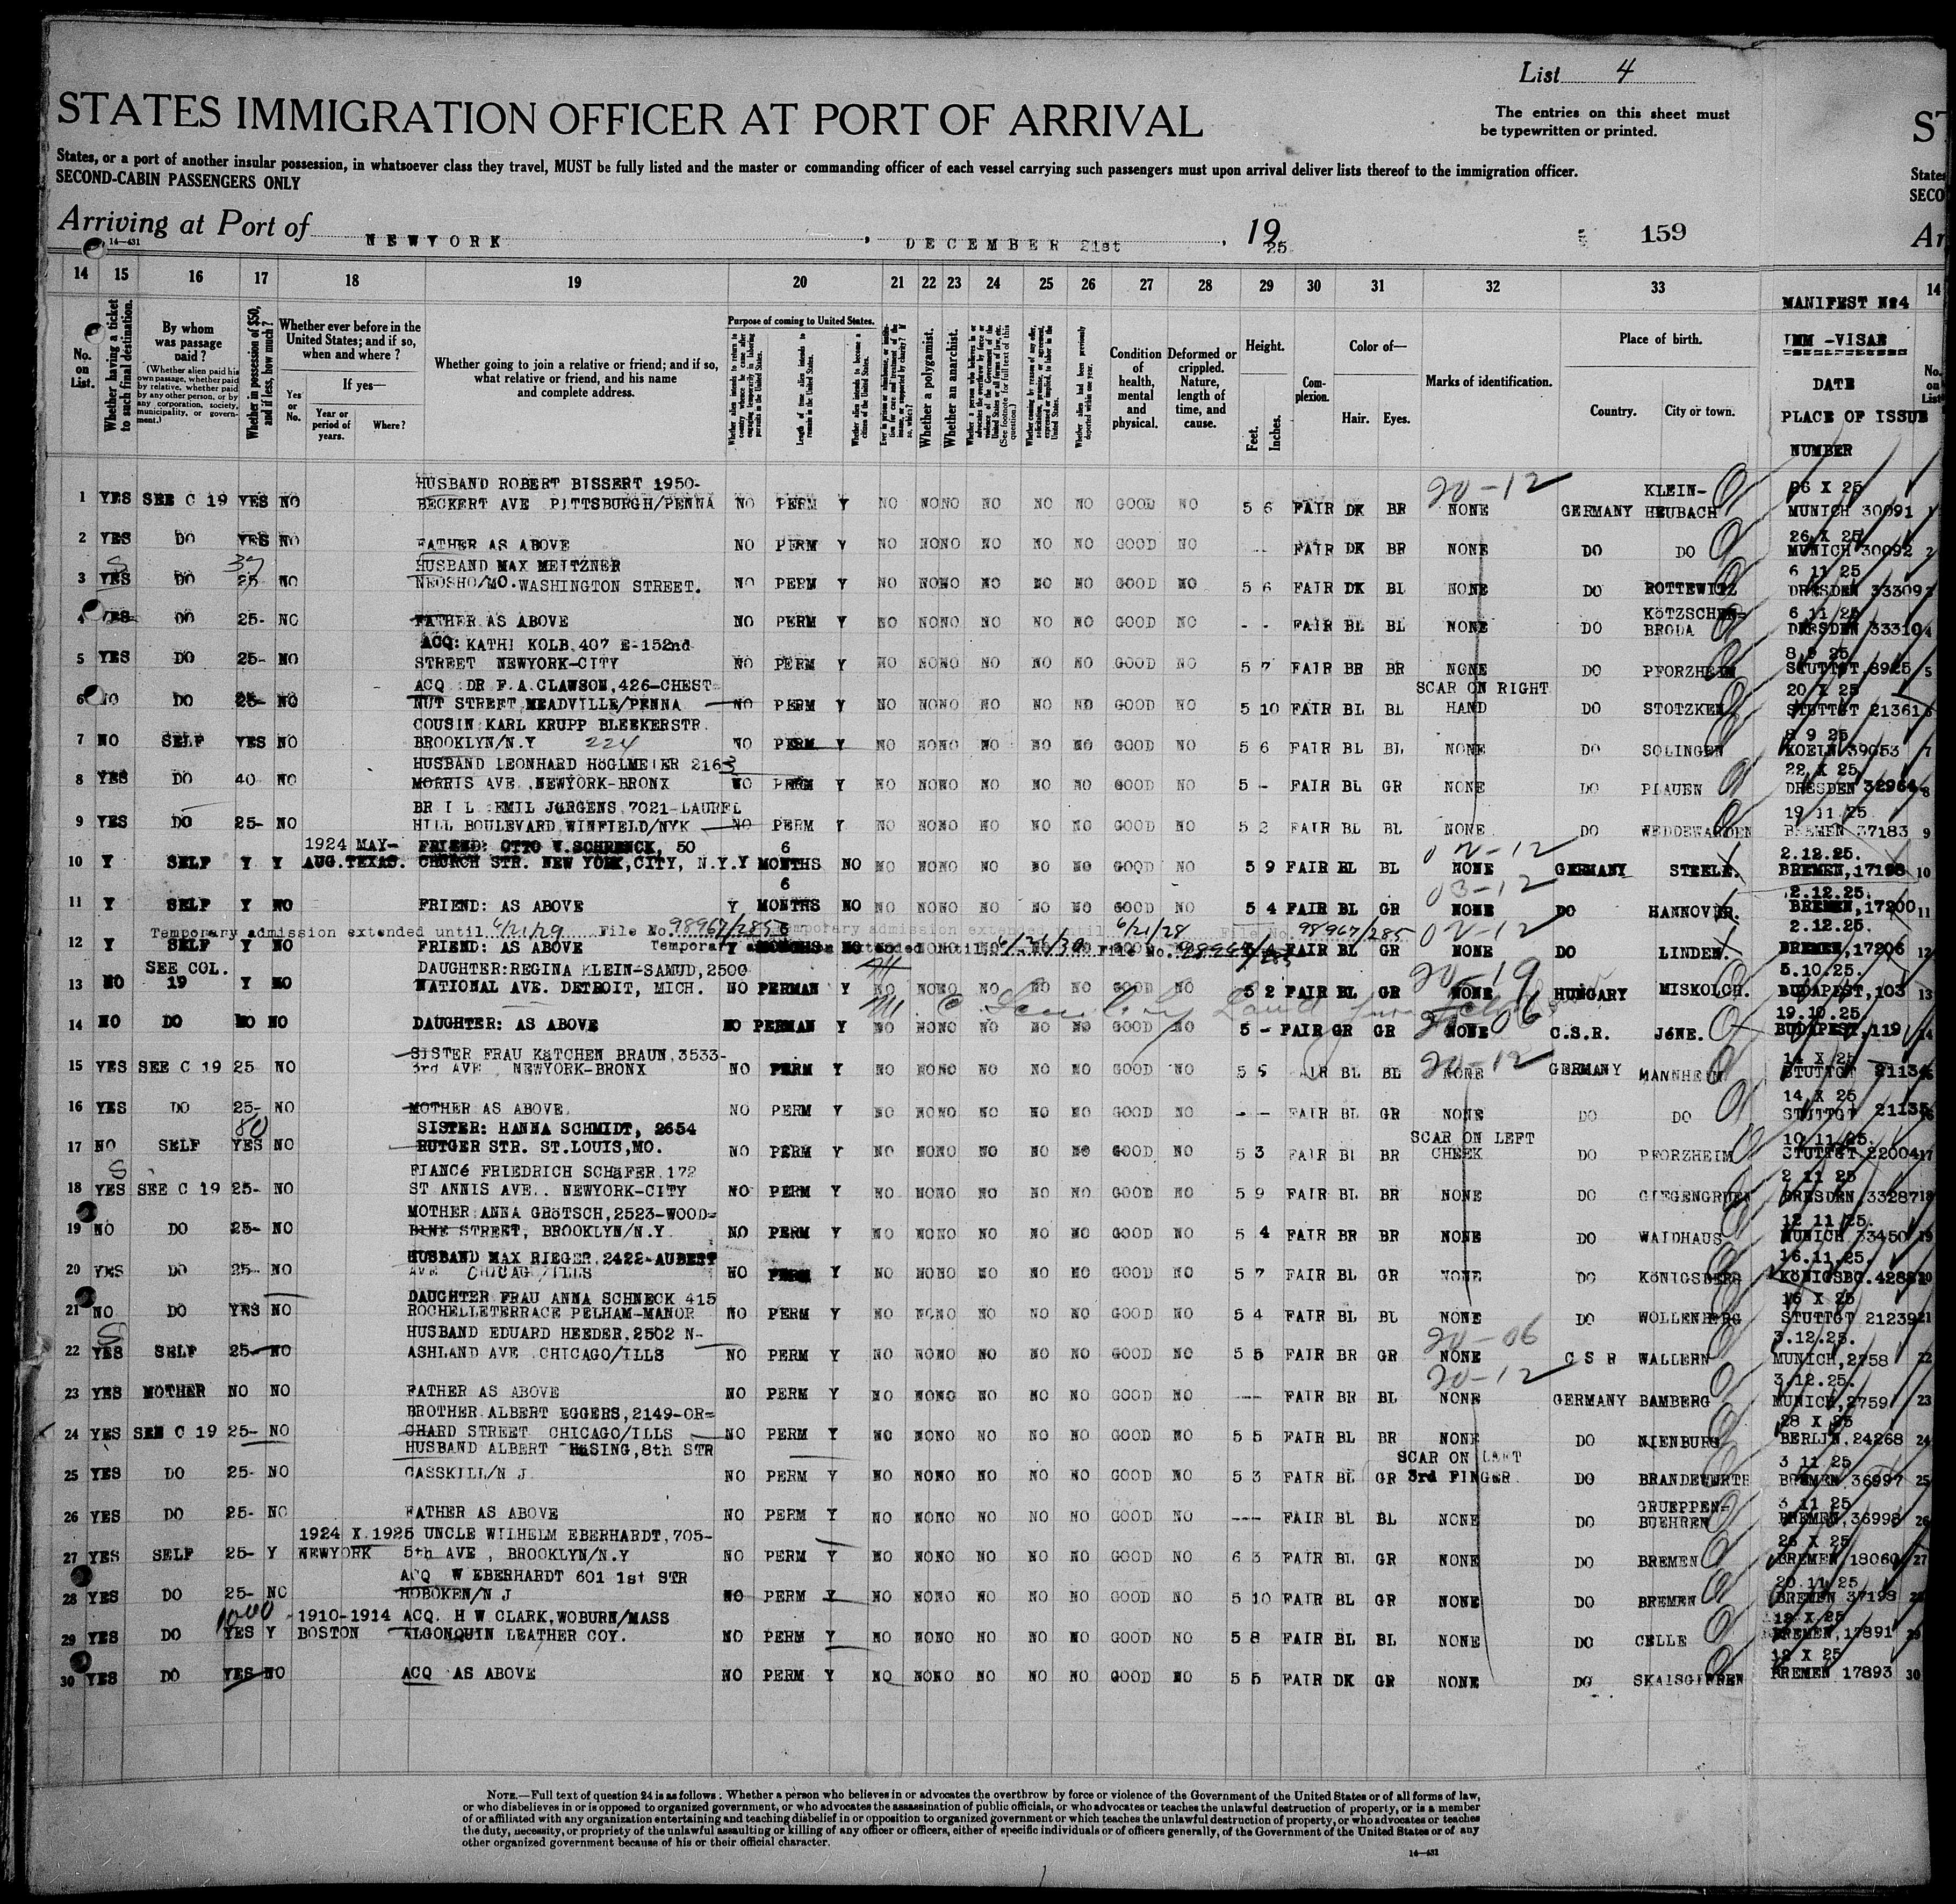 List 4
STATES IMMIGRATION OFFICER AT PORT OF ARRIVAL
The entries on this sheet must
be typewritten or printed.
States, or a port of another insular possession, in whatsoever class they travel, MUST be fully listed and the master or commanding officer of each vessel carrying such passengers must upon arrival deliver lists thereof to the immigration officer.
SECOND-CABIN PASSENGERS ONLY
Arriving at Port of NEWYORK , DECEMBER 21st , 1925 159
14—431
14 15 16 17 18 19 20 21 22 23 24 25 26 27 28 29 30 31 32 33 14
No. on List.
Whether having a ticket to such final destination.
By whom was passage paid?
(Whether alien paid his own passage, whether paid by relative, whether paid by any other person, or by any corporation, society, municipality, or government.)
Whether in possession of $50, and if less, how much?
Whether ever before in the United States; and if so, when and where?
Yes or No.
If yes—
Year or period of years.
Where?
Whether going to join a relative or friend; and if so, what relative or friend, and his name and complete address.
Purpose of coming to United States.
Length of time alien intends to remain in the United States.
Whether alien intends to become a citizen of the United States.
Whether a polygamist.
Whether an anarchist.
Condition of health, mental and physical.
Deformed or crippled. Nature, length of time, and cause.
Height.
Feet. Inches.
Complexion.
Color of—
Hair. Eyes.
Marks of identification.
Place of birth.
Country. City or town.
MANIFEST №4
IMM -VISAS
DATE
PLACE OF ISSUE
NUMBER
HUSBAND ROBERT BISSERT 1950- 20-12 KLEIN- 26 X 25
1 YES SEE C 19 YES NO BECKERT AVE PITTSBURGH/PENNA NO PERM Y NO NO NO NO NO NO GOOD NO 5 6 FAIR DK BR NONE GERMANY HEUBACH MUNICH 30091
26 X 25
2 YES DO YES NO FATHER AS ABOVE NO PERM Y NO NO NO NO NO NO GOOD NO -- FAIR DK BR NONE DO DO MUNICH 30092
HUSBAND MAX MEITZNER 6 11 25
3 YES DO 25 NO NEOSHO/MO. WASHINGTON STREET. NO PERM Y NO NO NO NO NO NO GOOD NO 5 6 FAIR DK BL NONE DO ROTTEWITZ DRESDEN 33309
KöTZSCHEN- 6 11 25
4 YES DO 25- NO FATHER AS ABOVE NO PERM Y NO NO NO NO NO NO GOOD NO - - FAIR BL BL NONE DO BRODA DRESDEN 33310
ACQ: KATHI KOLB 407 E-152nd 8 9 25
5 YES DO 25- NO STREET NEWYORK-CITY NO PERM Y NO NO NO NO NO NO GOOD NO 5 7 FAIR BR BR NONE DO PFORZHEIM STUTTGT 8925
ACQ DR F.A.CLAWSON, 426-CHEST= SCAR ON RIGHT 20 X 25
6 NO DO 25- NO NUT STREET MEADVILLE/PENNA NO PERM Y NO NO NO NO NO NO GOOD NO 5 10 FAIR BL BL HAND DO STOTZKEN STUTTGT 21361
COUSIN KARL KRUPP BLEEKERSTR. 8 9 25
7 NO SELF YES NO BROOKLYN/N.Y 224 NO PERM Y NO NO NO NO NO NO GOOD NO 5 6 FAIR BL BL NONE DO SOLINGEN KOELN 39053
HUSBAND LEONHARD HöGLMEIER 2163 22 X 25
8 YES DO 40 NO MORRIS AVE. NEWYORK-BRONX NO PERM Y NO NO NO NO NO NO GOOD NO 5 - FAIR BL GR NONE DO PLAUEN DRESDEN 32964
BR I L EMIL JüRGENS 7021-LAUREL 19 11 25
9 YES DO 25- NO HILL BOULEVARD WINFIELD/NYK NO PERM Y NO NO NO NO NO NO GOOD NO 5 2 FAIR BL BL NONE DO WEDDEWARDEN BREMEN 37183
1924 MAY- FRIEND: OTTO V.SCHRENCK, 50 6 02-12 2.12.25.
10 Y SELF Y Y AUG.TEXAS. CHURCH STR. NEW YORK,CITY, N.Y. Y MONTHS NO NO NO NO NO NO NO GOOD NO 5 9 FAIR BL BL NONE GERMANY STEELE. BREMEN,17198
6 03-12 2.12.25.
11 Y SELF Y NO FRIEND: AS ABOVE Y MONTHS NO NO NO NO NO NO NO GOOD NO 5 4 FAIR BL GR NONE DO HANNOVER. BREMEN,17200
Temporary admission extended until 6/21/29 File No. 98967/285 Temporary admission extended until 6/21/28 File No. 98967/285 02-12 2.12.25.
12 Y SELF Y NO FRIEND: AS ABOVE Temporary admission extended until 6/21/30 File No. FAIR BL GR NONE DO LINDEN. BREMEN,17206
SEE COL. DAUGHTER:REGINA KLEIN-SAMUD,2500 20-19 5.10.25.
13 NO 19 Y NO NATIONAL AVE. DETROIT, MICH. NO PERMAN Y NO NO NO NO NO NO GOOD NO 5 2 FAIR BL GR NONE HUNGARY MISKOLCH. BUDAPEST,103
19.10.25.
14 NO DO NO NO DAUGHTER: AS ABOVE NO PERMAN Y NO NO NO NO NO NO GOOD NO 5 - FAIR GR GR NONE C.S.R. JéNE. BUDAPEST,119
SISTER FRAU KäTCHEN BRAUN,3533- 20-12 14 X 25
15 YES SEE C 19 25 NO 3rd AVE NEWYORK-BRONX NO PERM Y NO NO NO NO NO NO GOOD NO 5 5 FAIR BL BL NONE GERMANY MANNHEIM STUTTGT 21134
14 X 25
16 YES DO 25- NO MOTHER AS ABOVE NO PERM Y NO NO NO NO NO NO GOOD NO - - FAIR BL GR NONE DO DO STUTTGT 21135
80 SISTER: HANNA SCHMIDT, 2654 SCAR ON LEFT 10 11 25.
17 NO SELF YES NO RUTGER STR. ST.LOUIS,MO. NO PERM Y NO NO NO NO NO NO GOOD NO 5 3 FAIR BL BR CHEEK DO PFORZHEIM STUTTGT 22004
FIANCé FRIEDRICH SCHäFER 172 2 11 25
18 YES SEE C 19 25- NO ST ANNIS AVE.. NEWYORK-CITY NO PERM Y NO NO NO NO NO NO GOOD NO 5 9 FAIR BL BR NONE DO GIEGENGRUEN DRESDEN 33287
MOTHER ANNA GRöTSCH,2523-WOOD= 12 11 25.
19 NO DO 25- NO BINE STREET, BROOKLYN/N.Y NO PERM Y NO NO NO NO NO NO GOOD NO 5 4 FAIR BR BR NONE DO WAIDHAUS MUNICH 33450
HUSBAND MAX RIEGER 2422-AUBERT 16.11.25.
20 YES DO 25- NO AVE CHICAG /ILLS NO PERM Y NO NO NO NO NO NO GOOD NO 5 7 FAIR BL GR NONE DO KöNIGSBERG KöNIGSBG.
DAUGHTER FRAU ANNA SCHNECK 415 16 X 25
21 NO DO YES NO ROCHELLETERRACE PELHAM-MANOR NO PERM Y NO NO NO NO NO NO GOOD NO 5 4 FAIR BL BL NONE DO WOLLENBERG STUTTGT 21239
HUSBAND EDUARD HEEDER.2502 N- 20-06 3.12.25.
22 YES SELF 25- NO ASHLAND AVE CHICAGO/ILLS NO PERM Y NO NO NO NO NO NO GOOD NO 5 5 FAIR BR GR NONE C S R WALLERN MUNICH,2758
20-12 3.12.25.
23 YES MOTHER NO NO FATHER AS ABOVE NO PERM Y NO NO NO NO NO NO GOOD NO --- FAIR BR BL NONE GERMANY BAMBERG MUNICH,2759
BROTHER ALBERT EGGERS,2149-OR= 28 X 25
24 YES SEE C 19 25- NO CHARD STREET CHICAGO/ILLS NO PERM Y NO NO NO NO NO NO GOOD NO 5 5 FAIR BL BR NONE DO NIENBURG BERLIN 24268
HUSBAND ALBERT HäSING,8th STR SCAR ON LEFT 3 11 25
25 YES DO 25- NO CASSKILL/N J. NO PERM Y NO NO NO NO NO NO GOOD NO 5 3 FAIR BL GR 3rd FINGER DO BREMEN 36997
GRUEPPEN- 3 11 25
26 YES DO 25- NO FATHER AS ABOVE NO PERM Y NO NO NO NO NO NO GOOD NO --- FAIR BL BL NONE DO BUEHREN BREMEN,36998
1924 X 1925 UNCLE WILHELM EBERHARDT,705- 26 X 25
27 YES SELF 25- Y NEWYORK 5th AVE, BROOKLYN/N.Y NO PERM Y NO NO NO NO NO NO GOOD NO 6 3 FAIR BL GR NONE DO BREMEN BREMEN 18060
ACQ W EBERHARDT 601 1st STR 20 11 25
28 YES DO 25- NO HOBOKEN/N J NO PERM Y NO NO NO NO NO NO GOOD NO 5 10 FAIR BL GR NONE DO BREMEN BREMEN 37198
1000 1910-1914 ACQ. H W CLARK,WOBURN/MASS 12 X 25
29 YES DO YES Y BOSTON ALGONQUIN LEATHER COY. NO PERM Y NO NO NO NO NO NO GOOD NO 5 8 FAIR BL BL NONE DO CELLE BREMEN,17891
12 X 25
30 YES DO YES NO ACQ AS ABOVE NO PERM Y NO NO NO NO NO NO GOOD NO 5 5 FAIR DK GR NONE DO BREMEN 17893 30
NOTE.—Full text of question 24 is as follows: Whether a person who believes in or advocates the overthrow by force or violence of the Government of the United States or of all forms of law,
or who disbelieves in or is opposed to organized government, or who advocates the assassination of public officials, or who advocates or teaches the unlawful destruction of property, or is a member
of or affiliated with any organization entertaining and teaching disbelief in or opposition to organized government or which teaches the unlawful destruction of property, or who advocates or teaches
the duty, necessity, or propriety of the unlawful assaulting or killing of any officer or officers, either of specific individuals or of officers generally, of the Government of the United States or of any
other organized government because of his or their official character.
14—431